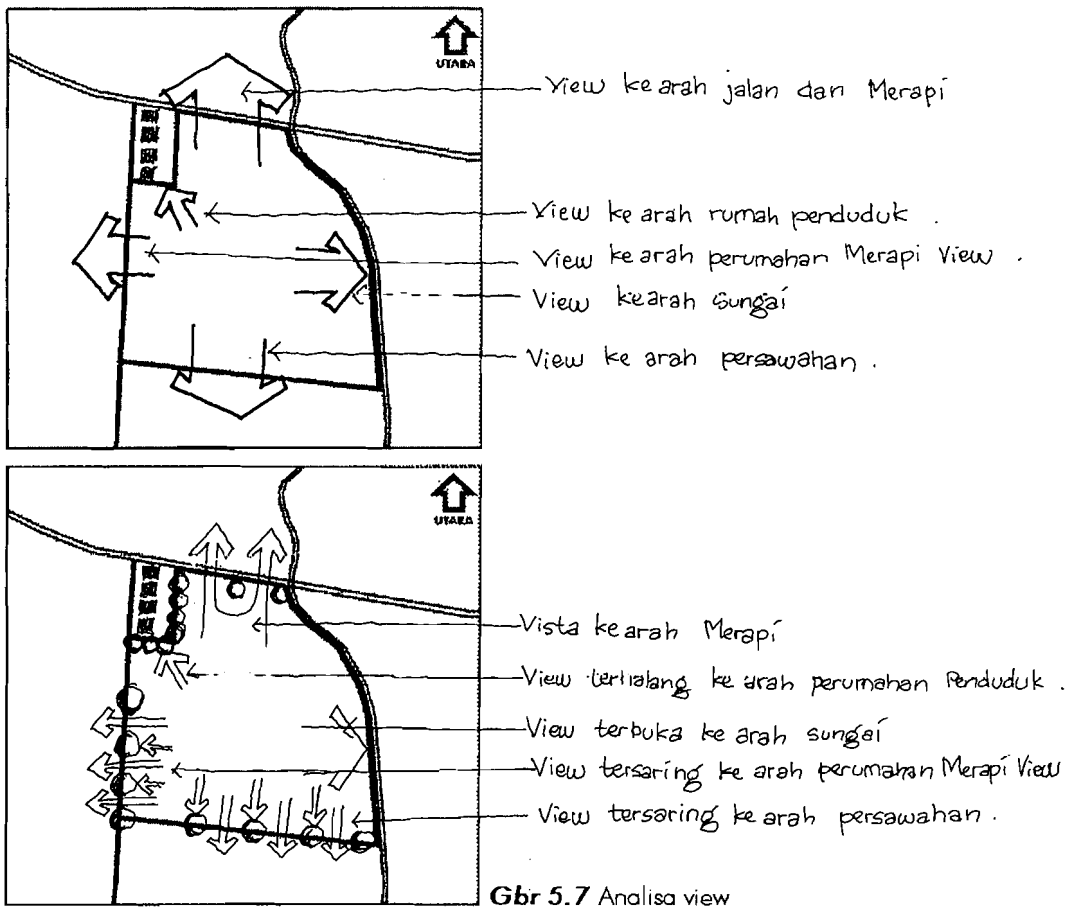 UTARA
View ke arah jalan dan Merapi
View ke arah rumah penduduk .
View ke arah perumahan Merapi View .
View ke arah sungai
View ke arah persawahan .
UTARA
Vista ke arah Merapi
View terhalang ke arah perumahan Penduduk .
View terbuka ke arah sungai
View tersaring ke arah perumahan Merapi View
View tersaring ke arah persawahan .
Gbr 5.7 Analisa view